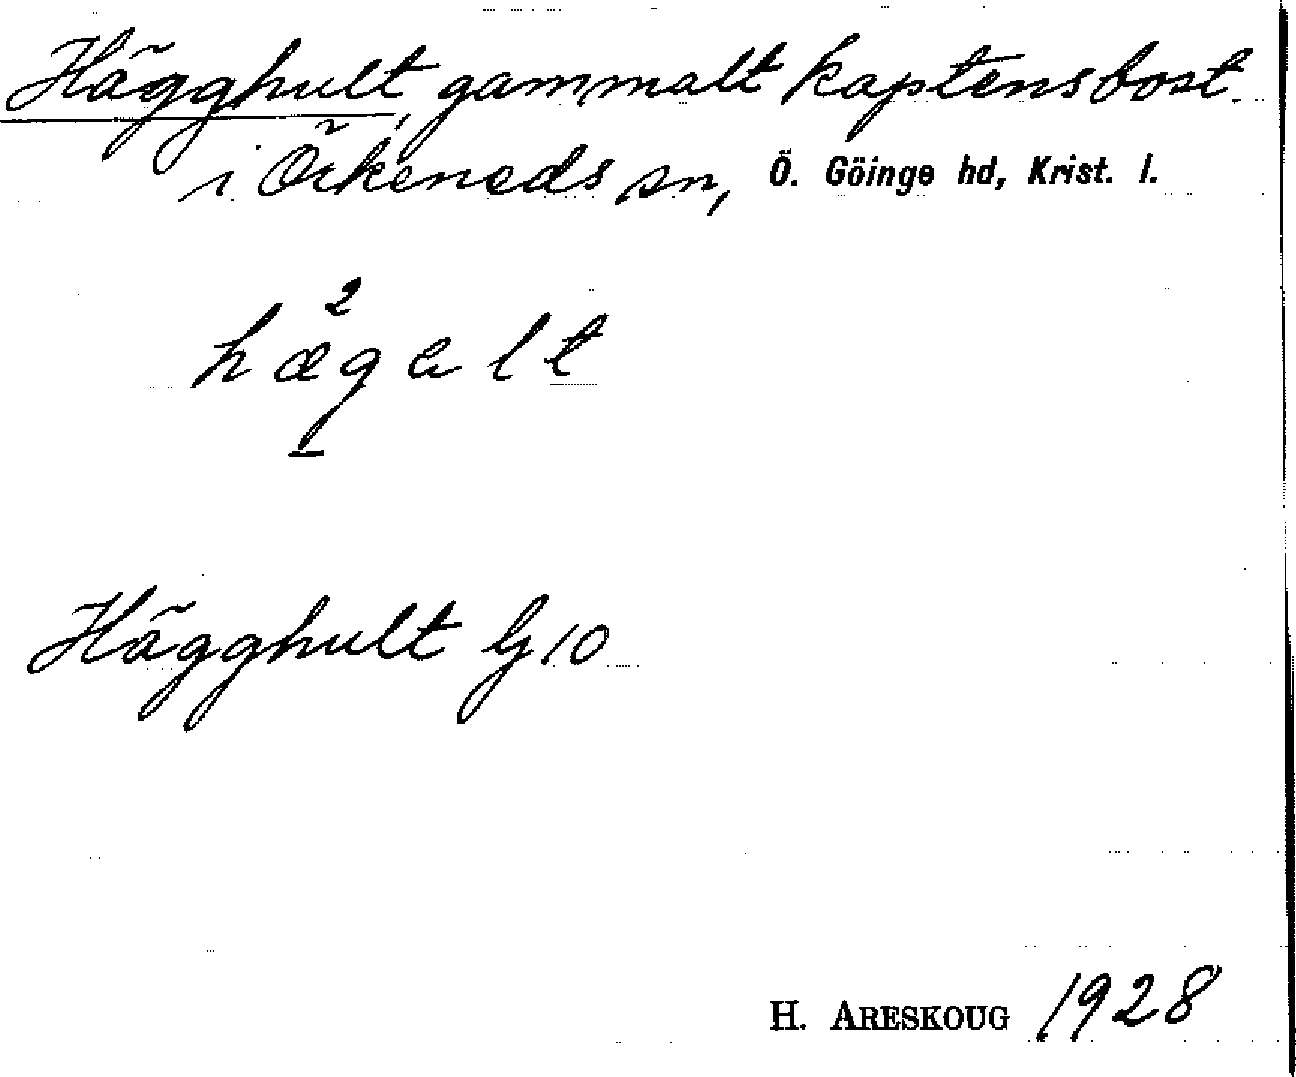 Hägghult, gammalt kaptensbost.
i Örkeneds sn, Ö. Göinge hd, Krist. l.
2
hægalt
Hägghult G 10
H. ARESKOUG 1928